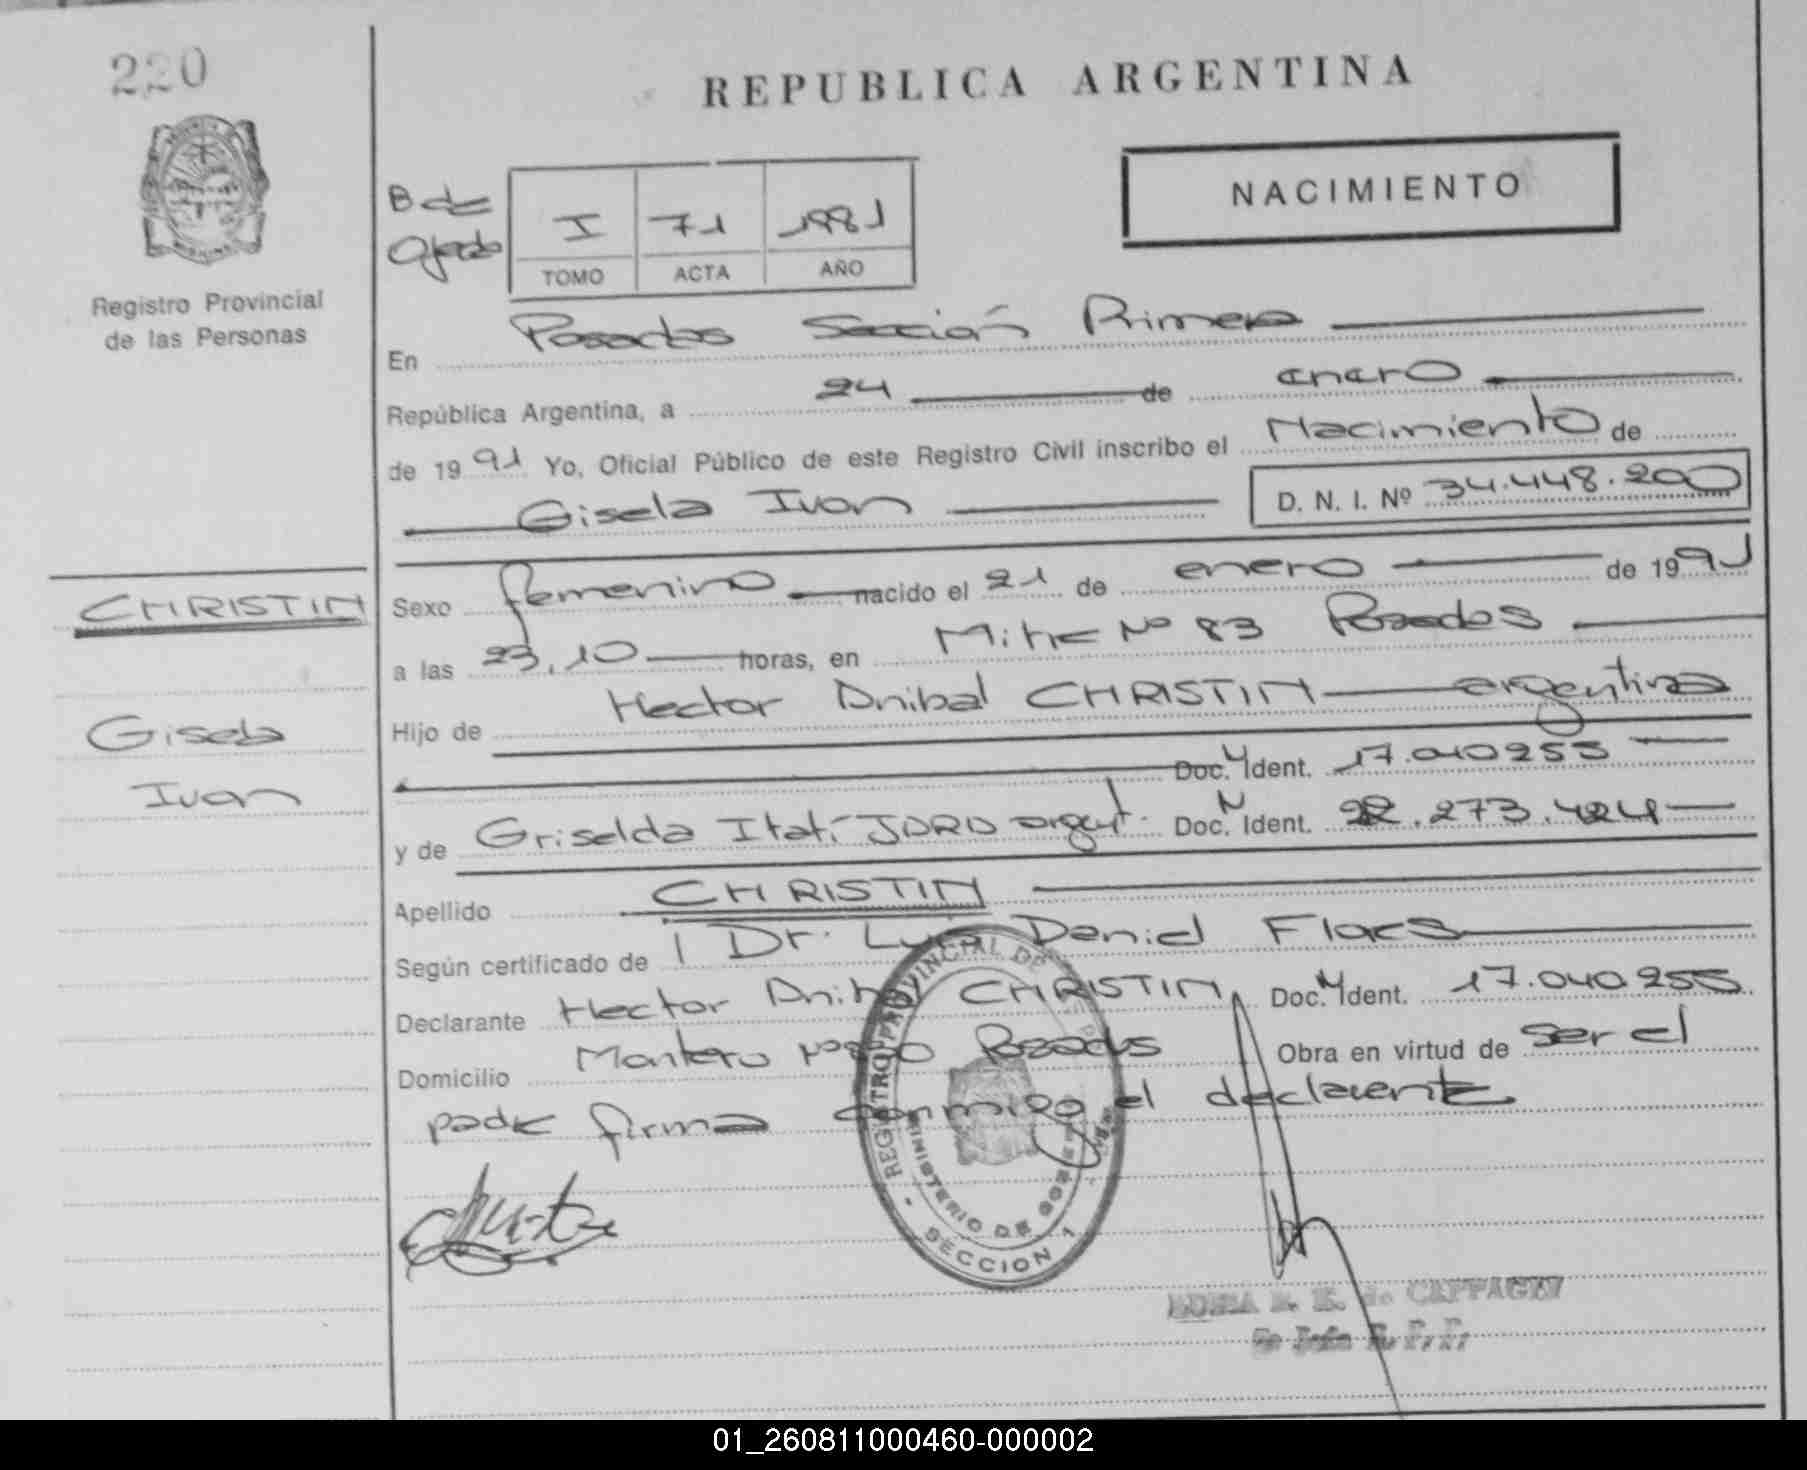 220
REPUBLICA ARGENTINA
NACIMIENTO
B de
I 71 1991
TOMO ACTA AÑO
Registro Provincial
de las Personas
En Posadas Sección Primera
República Argentina, a 24 de enero
de 1991 Yo, Oficial Público de este Registro Civil inscribo el Nacimiento de
Gisela Ivon D. N. I. Nº 34.448.200
CHRISTIN
Sexo femenino nacido el 21 de enero de 1991
a las 23,10 horas, en Mitre Nº 83 Posadas
Gisela
Ivon
Hijo de Hector Anibal CHRISTIN argentino
Doc. N Ident. 17.040255
y de Griselda Itatí JARA argent. Doc. N Ident. 22.273.424
Apellido CHRISTIN
Según certificado de Dr. Luis Daniel Flores
Declarante Hector Anibal CHRISTIN Doc. N Ident. 17.040.255
Domicilio Montero Posadas Obra en virtud de ser el
padre firma conmigo el declarante
REGISTRO PROVINCIAL DE LAS
MINISTERIO DE GOBIERNO
SECCION 1
de CAPPAGLI
01_260811000460-000002